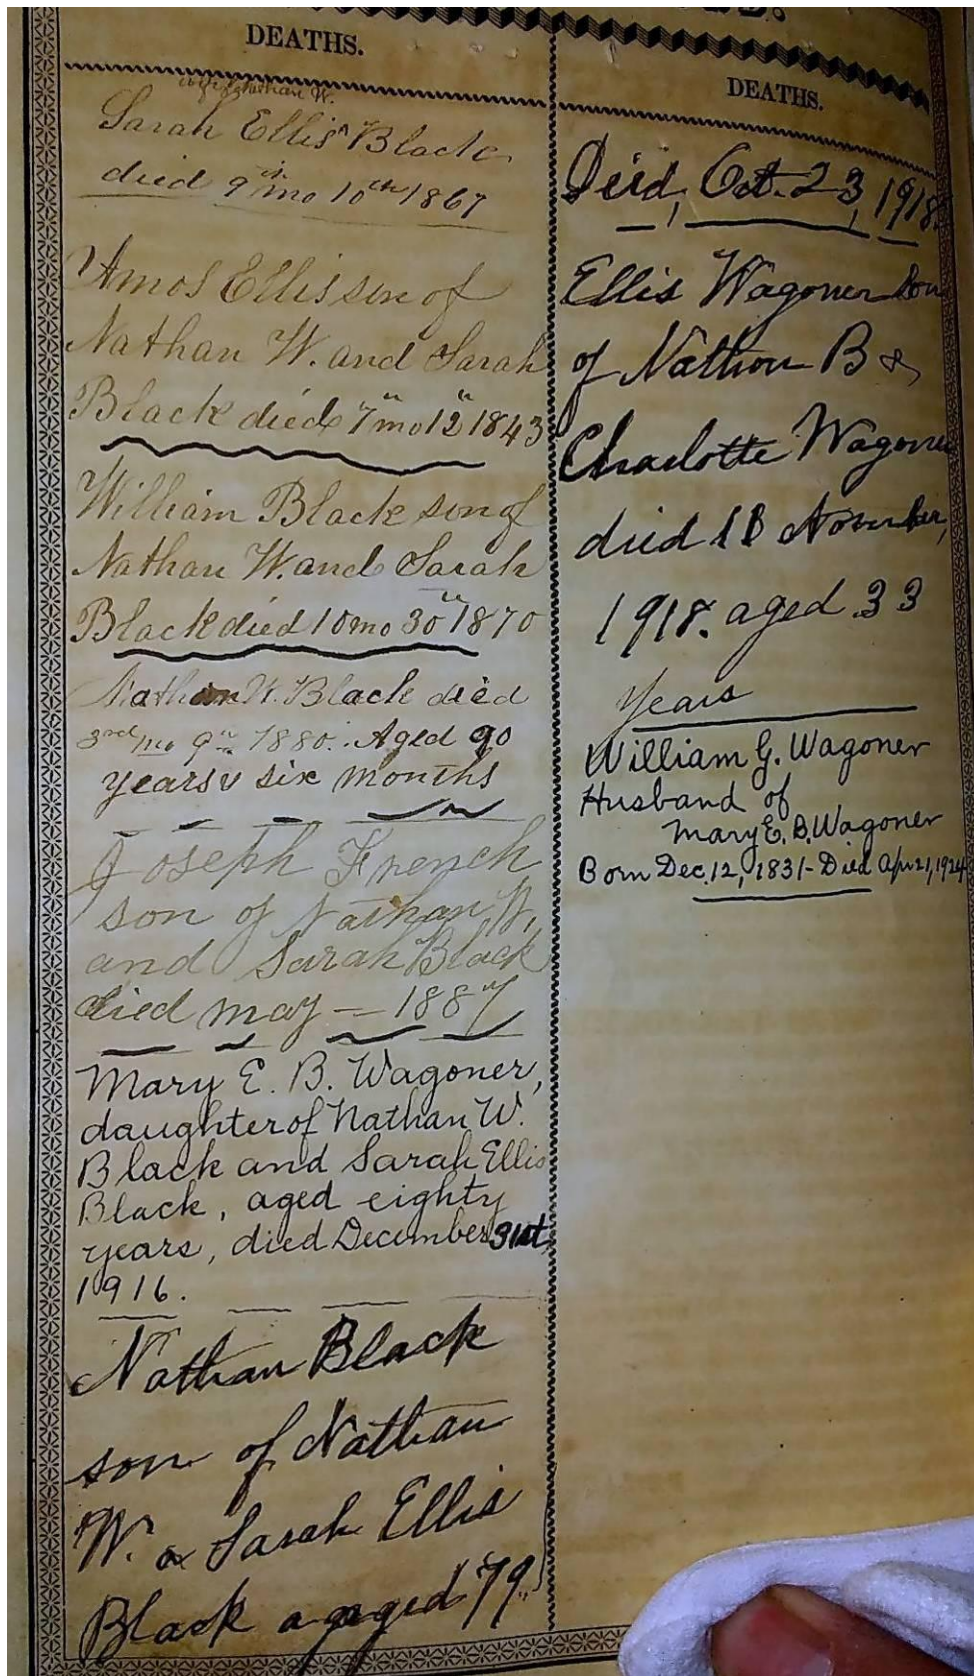 DEATHS.
wife of Nathan W.
Sarah Ellis ^ Black
died 9th mo 10th 1867
Amos Ellis son of
Nathan W. and Sarah
Black died 7" mo 12" 1843
William Black son of
Nathan W. and Sarah
Black died 10 mo 30" 1870
Nathan W. Black died
3rd mo 9th 1880. Aged 90
years & six months
Joseph French
son of Nathan W.
and Sarah Black
died may — 1887
Mary E. B. Wagoner,
daughter of Nathan W.
Black and Sarah Ellis
Black, aged eighty
years, died December 31st,
1916.
Nathan Black
son of Nathan
W. & Sarah Ellis
Black a aged 79
DEATHS.
Died, Oct. 23, 1918.
Ellis Wagoner Son
of Nathan B &
Charlotte Wagoner
died 18 November,
1918. aged 33
years
William G. Wagoner
Husband of
Mary E. B. Wagoner
Born Dec. 12, 1831 - Died Apr 21, 1924